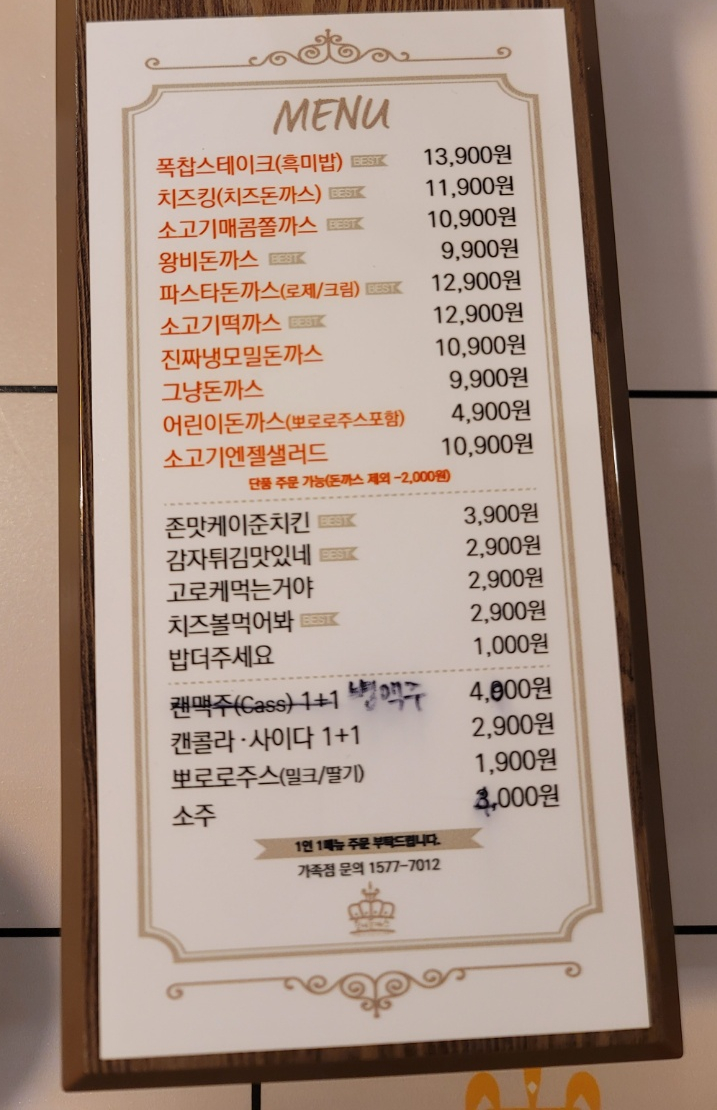 MENU
폭찹스테이크(흑미밥) BEST 13,900원
치즈킹(치즈돈까스) BEST 11,900원
소고기매콤쫄까스 BEST 10,900원
왕비돈까스 BEST 9,900원
파스타돈까스(로제/크림) BEST 12,900원
소고기떡까스 BEST 12,900원
진짜냉모밀돈까스 10,900원
그냥돈까스 9,900원
어린이돈까스(뽀로로주스포함) 4,900원
소고기엔젤샐러드 10,900원
단품 주문 가능(돈까스 제외 -2,000원)
존맛케이준치킨 BEST 3,900원
감자튀김맛있네 BEST 2,900원
고로케먹는거야 2,900원
치즈볼먹어봐 BEST 2,900원
밥더주세요 1,000원
캔맥주(Cass) 1+1 병맥주 4,000원
캔콜라·사이다 1+1 2,900원
뽀로로주스(밀크/딸기) 1,900원
소주 4,000원
1인 1메뉴 주문 부탁드립니다.
가족점 문의 1577-7012